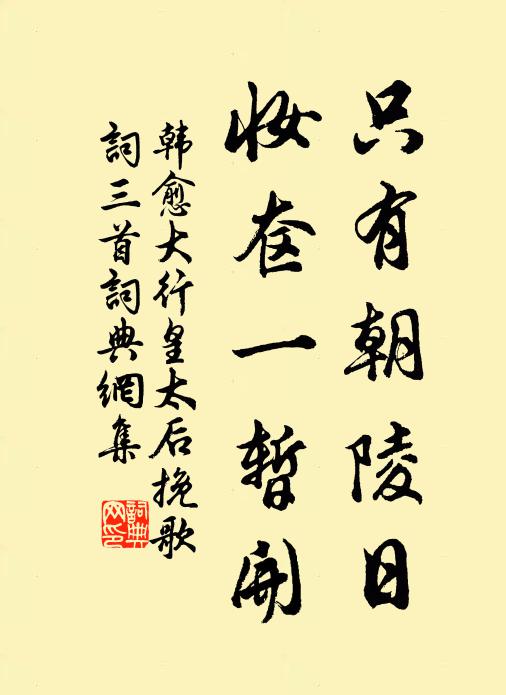 只有朝陵日
妆奁一暂开
韩愈大行皇太后挽歌
詞三首詞典網集
詞典
网印